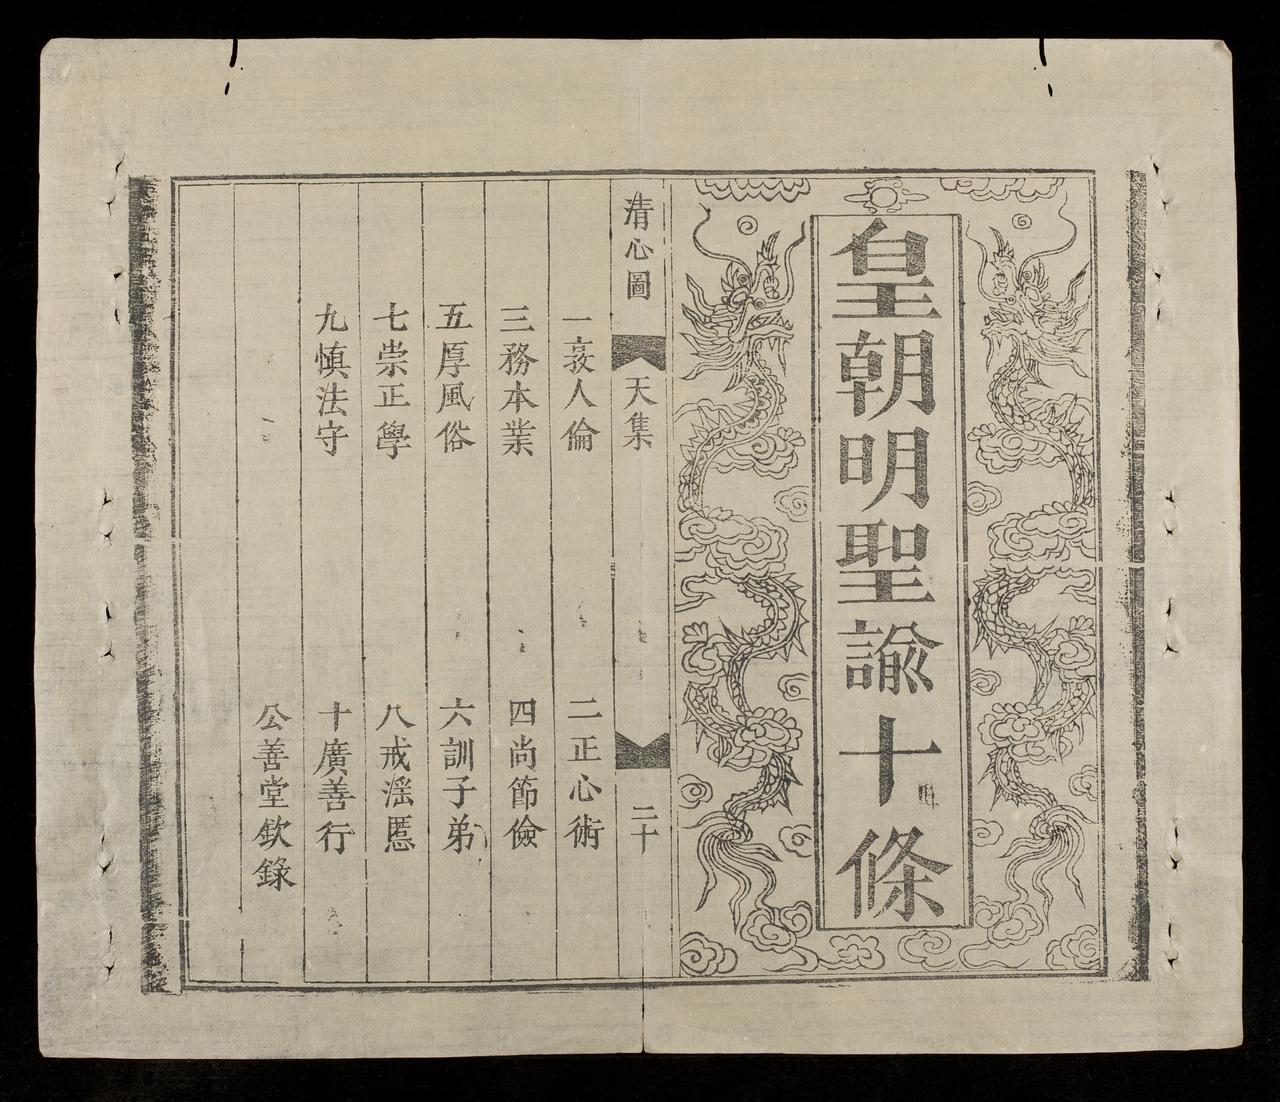 皇朝明聖諭十條
清心圖
天集
二十
一敦人倫
二正心術
三務本業
四尚節儉
五厚風俗
六訓子弟
七崇正學
八戒滛慝
九慎法守
十廣善行
公善堂欽錄